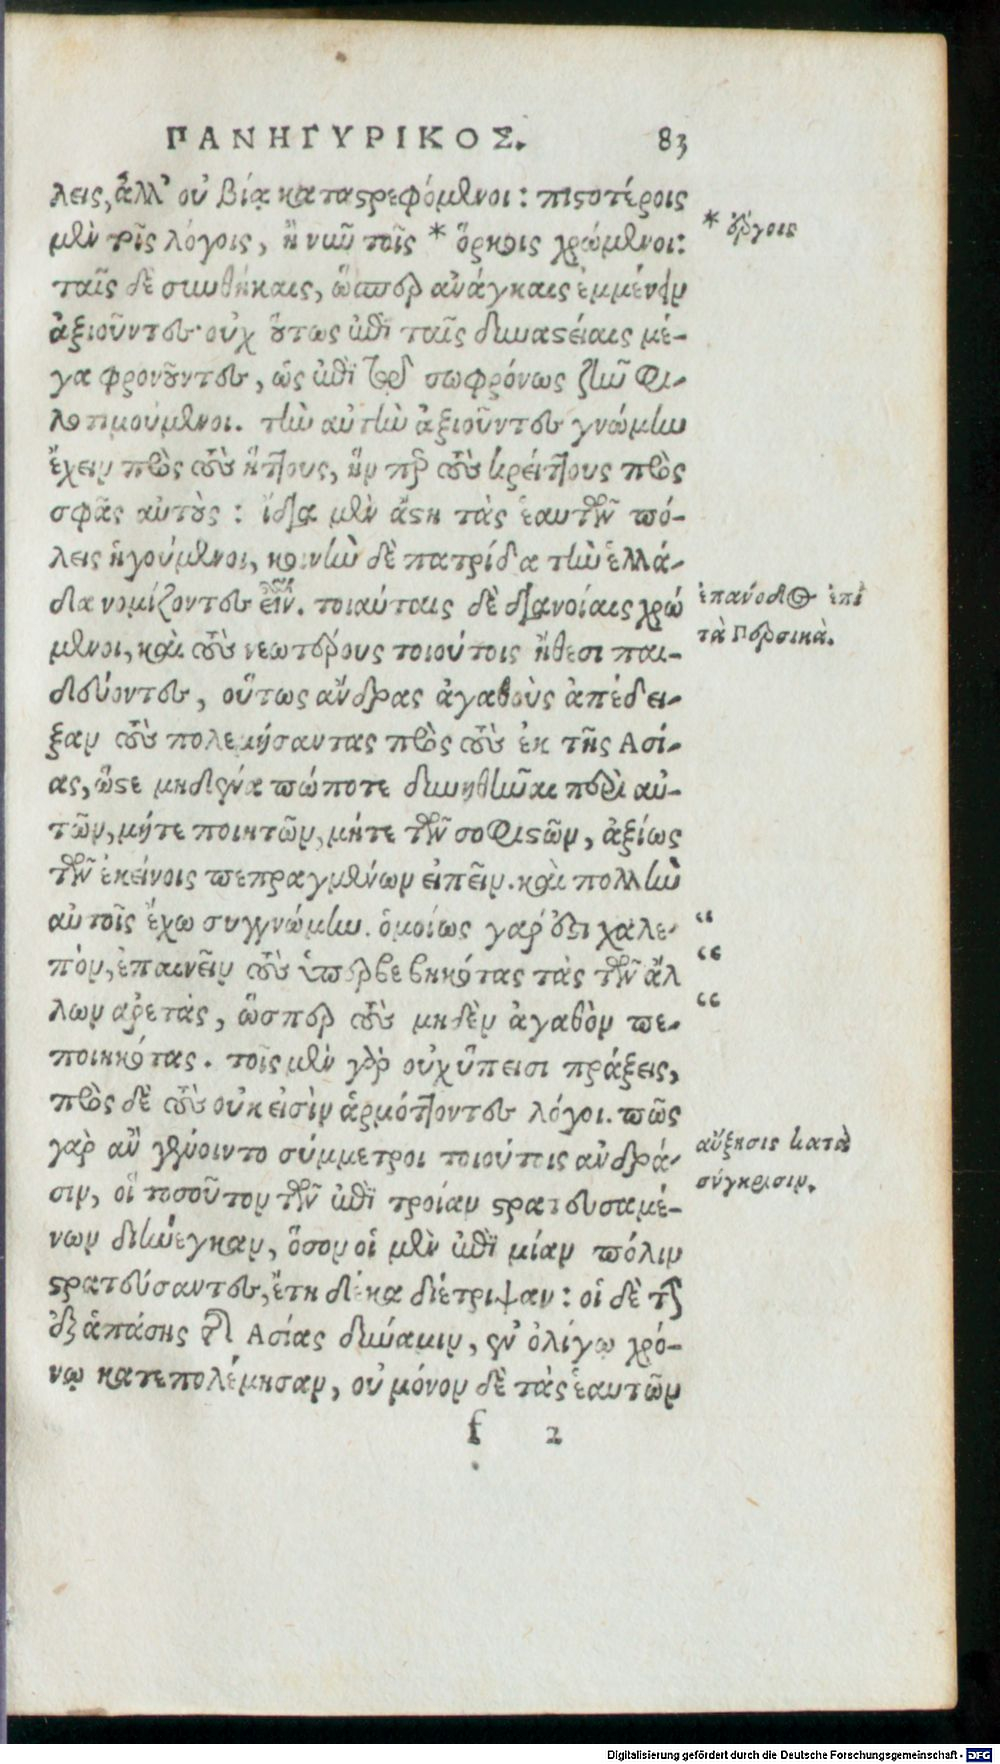 ΠΑΝΗΓΥΡΙΚΟΣ. 83
λεις, ἀλλ' οὐ βίᾳ καταστρεφόμενοι: πιστοτέροις
μὲν τοῖς λόγοις, ἢ νῦν τοῖς * ὅρκοις χρώμενοι:
* ἔργοις
ταῖς δὲ συνθήκαις, ὥσπερ ἀνάγκαις ἐμμένειν
ἀξιοῦντες· οὐχ οὕτως ἐπὶ ταῖς δυναστείαις μέ-
γα φρονοῦντες, ὡς ἐπὶ τῷ σωφρόνως ζῆν φι-
λοτιμούμενοι. τὴν αὐτὴν ἀξιοῦντες γνώμην
ἔχειν πρὸς τοὺς ἥττους, ἥνπερ τοὺς κρείττους πρὸς
σφᾶς αὐτούς: ἴδια μὲν ἄστη τὰς ἑαυτῶν πό-
λεις ἡγούμενοι, κοινὴν δὲ πατρίδα τὴν ἑλλά-
δα νομίζοντες εἶναι. τοιαύταις δὲ διανοίαις χρώ
ἐπάνοδος ἐπὶ
μενοι, καὶ τοὺς νεωτέρους τοιούτοις ἤθεσι παι-
τὰ Περσικὰ.
δεύοντες, οὕτως ἄνδρας ἀγαθοὺς ἀπέδει-
ξαν τοὺς πολεμήσαντας πρὸς τοὺς ἐκ τῆς Ασί-
ας, ὥστε μηδένα πώποτε δυνηθῆναι περὶ αὐ-
τῶν, μήτε ποιητῶν, μήτε τῶν σοφιστῶν, ἀξίως
τῶν ἐκείνοις πεπραγμένων εἰπεῖν. καὶ πολλὴν
αὐτοῖς ἔχω συγγνώμην. ὁμοίως γάρ ἐστι χαλε-
“
πὸν, ἐπαινεῖν τοὺς ὑπερβεβηκότας τὰς τῶν ἄλ
“
λων ἀρετὰς, ὥσπερ τοὺς μηδὲν ἀγαθὸν πε-
“
ποιηκότας. τοῖς μὲν γὰρ οὐχ ὕπεισι πράξεις,
πρὸς δὲ τοὺς οὐκ εἰσὶν ἁρμόττοντες λόγοι. πῶς
γὰρ ἂν γένοιντο σύμμετροι τοιούτοις ἀνδρά-
αὔξησις κατὰ
σιν, οἳ τοσοῦτον τῶν ἐπὶ τροίαν στρατευσαμέ-
σύγκρισιν.
νων διήνεγκαν, ὅσον οἱ μὲν ἐπὶ μίαν πόλιν
στρατεύσαντες, ἔτη δέκα διέτριψαν: οἱ δὲ τὴν
ἐξ ἁπάσης τῆς Ασίας δύναμιν, ἐν ὀλίγῳ χρό-
νῳ κατεπολέμησαν, οὐ μόνον δὲ τὰς ἑαυτῶν
f 2
Digitalisierung gefördert durch die Deutsche Forschungsgemeinschaft - DFG